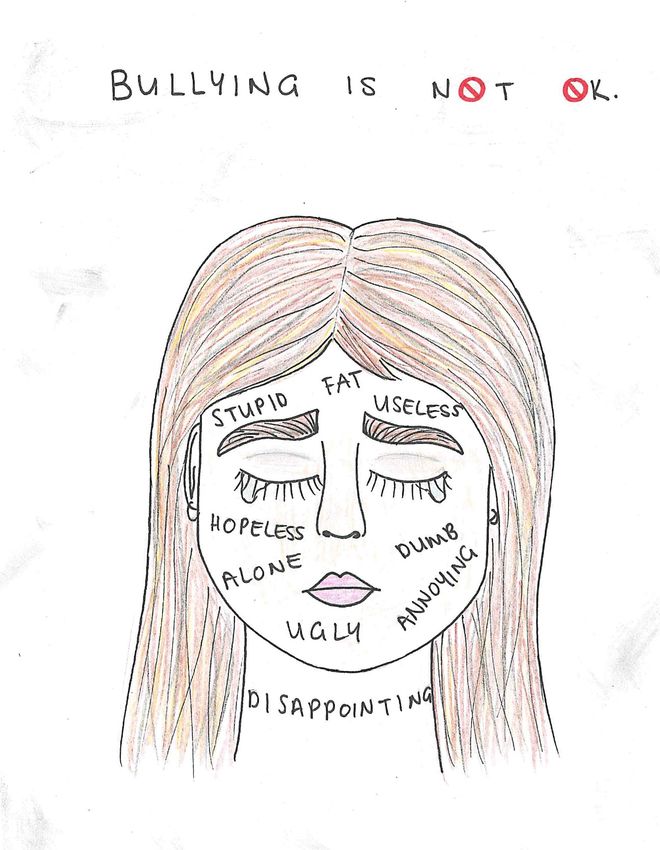 BULLYING IS NOT OK.
FAT
STUPID
USELESS
HOPELESS
DUMB
ALONE
ANNOYING
UGLY
DISAPPOINTING